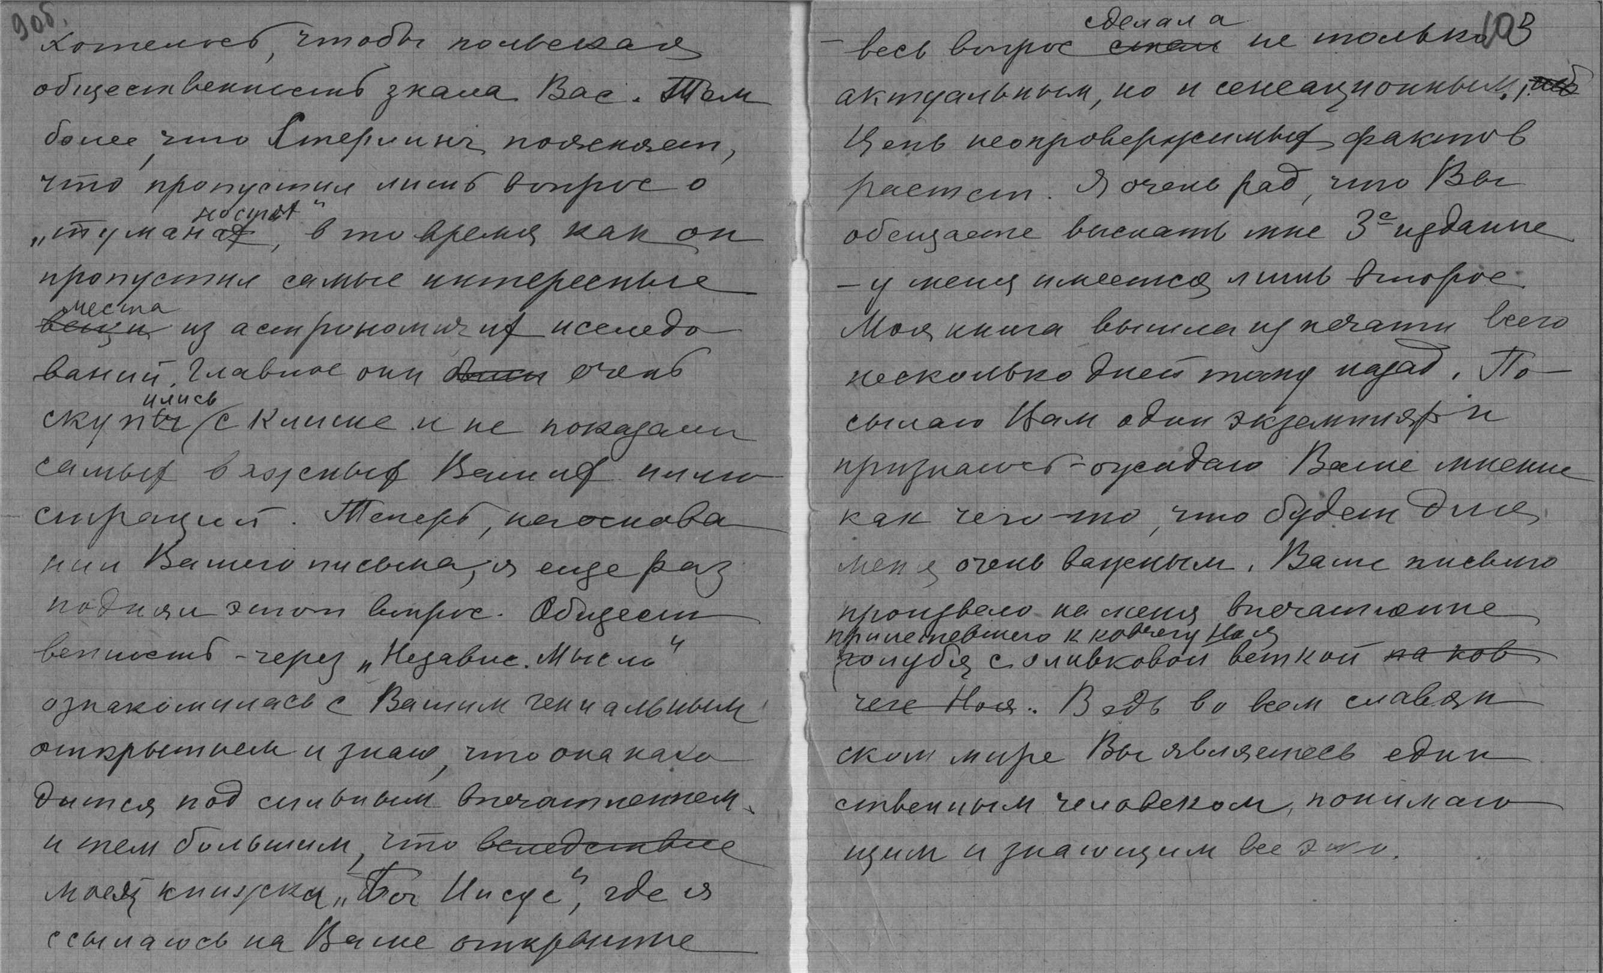 90б.
хотелось, чтобы польская
общественность знала Вас. Тем
более, что Стерлинг поясняет,
что пропустил лишь вопрос о
ностях
„туманах“, в то время как он
пропустил самые интересные
места
вещи из астрономич их исследо
ваний. Главное они были очень
ились
скупы с клише и не показали
самых важных Ваших иллю
страций. Теперь, на основа
нии Вашего письма, я еще раз
поднял этот вопрос. Общест
венность – через „Независ. Мысль“
ознакомилась с Вашим гениальным
открытием и знаю, что она нахо
дится под сильным впечатлением
и тем большим, что вследствие
моей книжки „Бог Иисус“, где я
ссылаюсь на Ваше открытие
103
сделала
– весь вопрос стал не только
актуальным, но и сенсационным,
Цепь неопровержимых фактов
растет. Я очень рад, что Вы
обещаете выслать мне 3е издание
– у меня имеется лишь второе.
Моя книга вышла из печати всего
несколько дней тому назад. По–
сылаю Вам один экземпляр и
признаюсь – ожидаю Ваше мнение
как чего-то, что будет для
меня очень важным. Ваше письмо
произвело на меня впечатление
прилетевшего к ковчегу Ноя
голубя с оливковой веткой на ков
чеге Ноя. Ведь во всем славян
ском мире Вы являетесь един
ственным человеком, понимаю
щим и знающим все это.